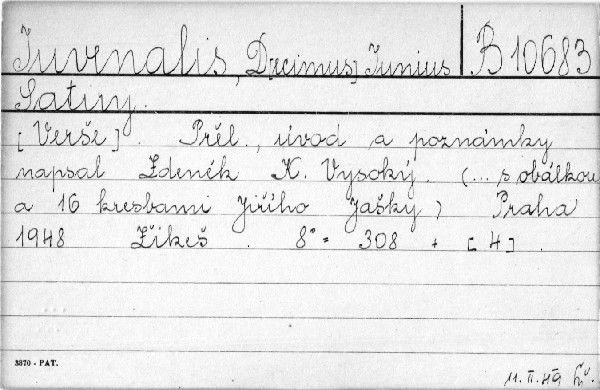 Juvenalis, D[ecimus] Junius B 10683
Satiry.
[Verše]. Přel., úvod a poznámky
napsal Zdeněk K. Vysoký. (... s obálkou
a 16 kresbami Jiřího Jašky) Praha
1948 Žikeš. 8° 308 + [4].
3870 - PAT.
11. II. 49